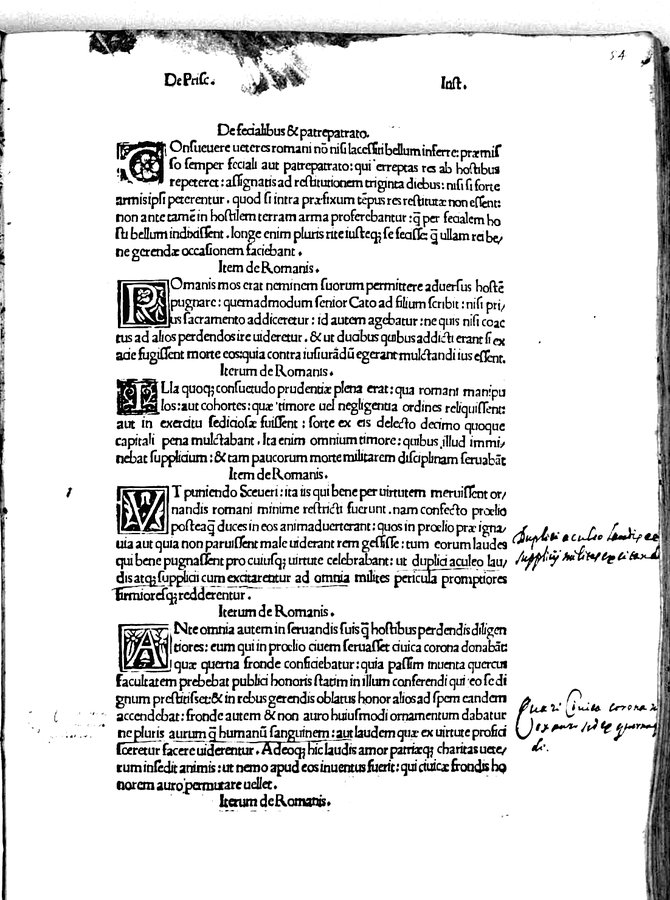 54
De Prisc. Inst.
De fecialibus & patrepatrato.
COnsueuere ueteres romani nõ nisi lacessiti bellum inferre: præmis/
so semper feciali aut patrepatrato: qui erreptas res ab hostibus
repeteret: assignatis ad restitutionem triginta diebus: nisi si forte
armis ipsi peterentur. quod si intra præfixum tẽpus res restitutæ non essent:
non ante tamẽ in hostilem terram arma proferebantur: q̃ per fecialem ho
sti bellum indixissent. longe enim pluris rite iusteq; se fecisse: q̃ ullam rei be/
ne gerendæ occasionem faciebant.
Item de Romanis.
ROmanis mos erat neminem suorum permittere aduersus hostẽ
pugnare: quemadmodum senior Cato ad filium scribit: nisi pri/
us sacramento addiceretur: id autem agebatur: ne quis nisi coac
tus ad alios perdendos ire uideretur. & ut ducibus quibus addicti erant si ex
acie fugissent morte eos quia contra iusiurãdũ egerant mulctandi ius essent.
Iterum de Romanis.
ILla quoq; consuetudo prudentiæ plena erat: qua romani manipu
los: aut cohortes: quæ timore uel negligentia ordines reliquissent:
aut in exercitu sediciosæ fuissent: forte ex eis delecto decimo quoque
capitali pena mulctabant. Ita enim omnium timore: quibus illud immi/
nebat supplicium: & tam paucorum morte militarem disciplinam seruabãt
Item de Romanis.
VT puniendo Sceueri: ita iis qui bene per uirtutem meruissent or/
nandis romani minime restricti fuerunt. nam confecto prœlio
posteaq̃ duces in eos animaduerterant: quos in prœlio præ igna/
uia aut quia non paruissent male uiderant rem gessisse: tum eorum laudes
qui bene pugnassent pro cuiusq; uirtute celebrabant: ut duplici aculeo lau/
dis atq; supplicii cum excitarentur ad omnia milites pericula promptiores
firmioresq; redderentur.
Duplici aculeo laudis ac
supplicij milites excitandi
Iterum de Romanis.
ANte omnia autem in seruandis suis q̃ hostibus perdendis diligen
tiores: eum qui in prœlio ciuem seruasset ciuica corona donabãt
quæ querna fronde conficiebatur: quia passim inuenta quercus
facultatem prebebat publici honoris statim in illum conferendi qui eo se di
gnum prestitisset: & in rebus gerendis oblatus honor alios ad spem eandem
accendebat: fronde autem & non auro huiusmodi ornamentum dabatur
ne pluris aurum q̃ humanũ sanguinem: aut laudem quæ ex uirtute profici
sceretur facere uiderentur. Adeoq; hic laudis amor patriæq; charitas uete/
rum insedit animis: ut nemo apud eos inuentus fuerit: qui ciuicæ frondis ho
norem auro permutare uellet.
Ciuica corona
ex auro sed
Iterum de Romanis.